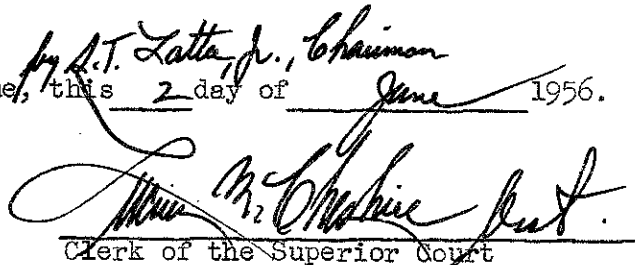 by S.T. Latta, Jr., Chairman
e, this 2 day of June 1956.
M. Cheshire
Clerk of the Superior Court